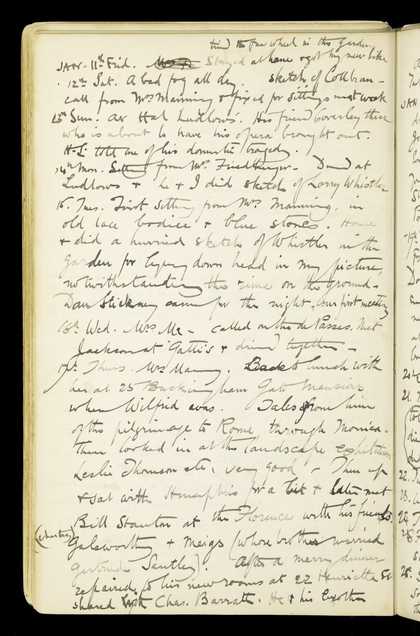 tried the free wheel in this garden
JANY. 11th Frid. Stayed at home & got my new bike
12th Sat. A bad fog all day. sketch of Cothran -
call from Mrs Manning & fixed for sittings next week
13th Sun. At Hal Ludlows. His friend there
who is about to have his opera brought out.
H.L. told me of his domestic tragedy.
14th Mon. Sitting from Mr. Dined at
Ludlows & he & I did sketch of Lorry Whistler
15. Tues. First sitting from Mrs Manning. in
old lace bodice & blue stones. Home
& did a hurried sketch of Whistler in the
garden for lying down head in my picture,
notwithstanding the snow on the ground.
Dan Stickney came for the night. (Our first meeting
16th Wed. Mrs M - called on the de Passes. Met
Jackson at Gatti's & dined together -
17th Thurs. Mrs Manny. Back to lunch with
her at 25 Buckingham Gate Mansions
when Wilfrid was. Tales from him
of this pilgrimage to Rome through Monica.
Then looked in at the landscape exhibition
Leslie Thomson etc; very good - Then up
& sat with Humphris for a bit & later met
Bill Staunton at the Florence with his friends
Galsworthy & Meigs (whose brother married
Gertrude Santley). After a merry dinner
repaired to his new rooms at 22 Henrietta St
shared with Chas. Barratt. He & his brother